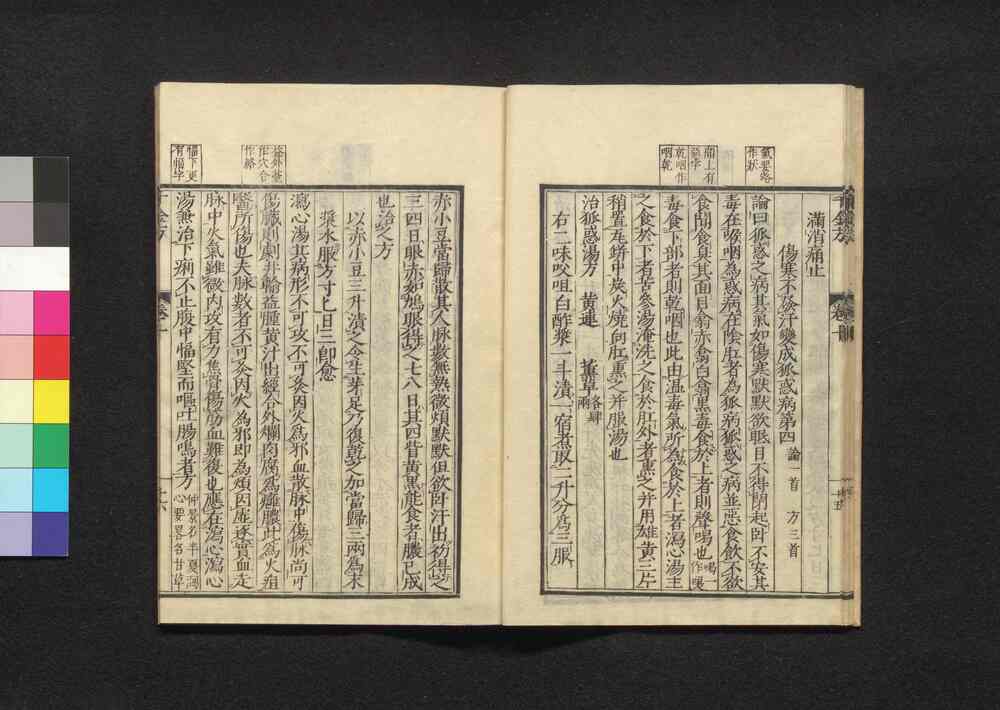 氣要略
作狀
乾咽作
咽乾
滿消痛止
傷寒不發汗變成狐惑病第四 論一首 方三首
論曰狐惑之病其氣如傷寒默默欲眠目不得閉起卧不安其
毒在喉咽為惑病在陰肛者為狐病狐惑之病並惡食飲不欲
食聞食臭其面目翕赤翕白翕黑毒食於上者則聲喝也喝一作嗄
毒食下部者則乾咽也此由温毒氣所為食於上者瀉心湯主
之食於下者苦參湯淹洗之食於肛外者熏之并用雄黃三片
稍置瓦缾中炭火燒向肛熏之并服湯也
治狐惑湯方 黃連 薰草各肆兩
右二味㕮咀白酢漿一斗漬一宿煮取二升分為三服
愊下更
有愊字
赤小豆當歸散其人脉數無熱微煩默默但欲卧汗出初得之
三四日眼赤如鳩眼得之七八日其四眥黃黑能食者膿已成
也治之方
以赤小豆三升漬之令生芽足乃復乾之加當歸三兩為末
漿水服方寸匕日三即愈
瀉心湯其病形不可攻不可灸因火為邪血散脉中傷脉尚可
傷臟則劇井輸益腫黃汁出經合外爛肉腐為癰膿此為火疽
醫所傷也夫脉數者不可灸因火為邪即為煩因虛逐實血走
脉中火氣雖微內攻有力焦骨傷筋血難復也應在瀉心瀉心
湯兼治下痢不止腹中愊堅而嘔吐腸鳴者方仲景名半夏瀉心要畧名甘草